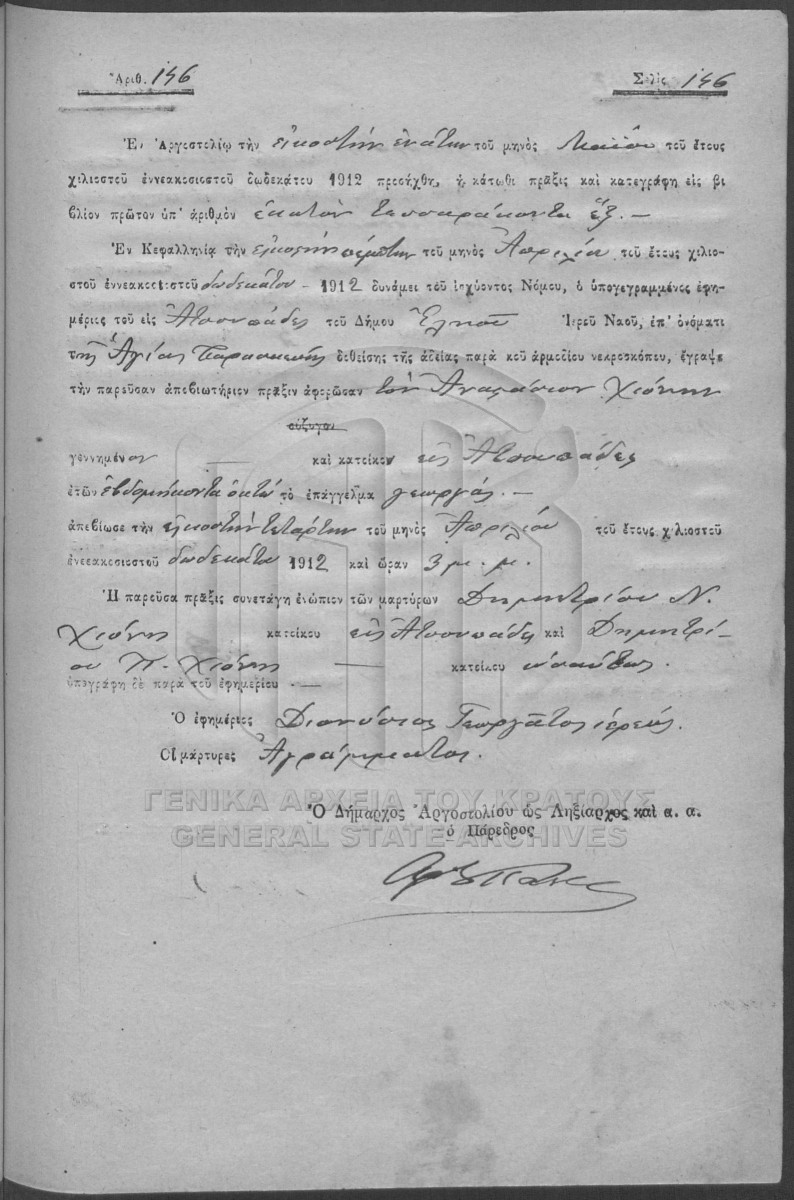 Ἀριθ. 146
Σελὶς 146
Ἐν Ἀργοστολίῳ τὴν εἰκοστὴν ἐνάτην τοῦ μηνὸς Μαΐου τοῦ ἔτους
χιλιοστοῦ ἐννεακοσιοστοῦ δωδεκάτου 1912 προσήχθη, ἡ κάτωθι πρᾶξις καὶ κατεγράφη εἰς βι
βλίον πρῶτον ὑπ' ἀριθμὸν ἑκατὸν τεσσαράκοντα ἕξ. —
Ἐν Κεφαλληνίᾳ τὴν εἰκοστὴν πέμπτην τοῦ μηνὸς Ἀπριλίου τοῦ ἔτους χιλιο-
στοῦ ἐννεακοσιοστοῦ δωδεκάτου - 1912 δυνάμει τοῦ ἰσχύοντος Νόμου, ὁ ὑπογεγραμμένος ἐφη-
μέριος τοῦ εἰς Ἀτσουπάδες τοῦ Δήμου Ἐλειοῦ Ἱεροῦ Ναοῦ, ἐπ' ὀνόματι
τῆς Ἁγίας Παρασκευῆς δοθείσης τῆς ἀδείας παρὰ τοῦ ἁρμοδίου νεκροσκόπου, ἔγραψε
τὴν παροῦσαν ἀπεβιωτήριον πρᾶξιν ἀφορῶσαν τὸν Ἀναστάσιον Χιόνην
σύζυγον
γεννημένον — καὶ κατοίκον εἰς Ἀτσουπάδες
ἐτῶν ἑβδομήκοντα ὀκτώ τὸ ἐπάγγελμα γεωργός. —
ἀπεβίωσε τὴν εἰκοστὴν τετάρτην τοῦ μηνὸς Ἀπριλίου τοῦ ἔτους χιλιοστοῦ
ἐννεακοσιοστοῦ δωδεκάτου 1912 καὶ ὥραν 3 μ. μ.
Ἡ παροῦσα πρᾶξις συνετάγη ἐνώπιον τῶν μαρτύρων Δημητρίου Ν.
Χιόνη κατοίκου εἰς Ἀτσουπάδες καὶ Δημητρί-
ου Π. Χιόνη — κατοίκου ὡσαύτως.
ὑπογράφη δὲ παρὰ τοῦ ἐφημερίου . —
Ὁ ἐφημέριος Διονύσιος Γεωργᾶτος ἱερεύς.
Οἱ μάρτυρες Ἀγράμματοι.
ΓΕΝΙΚΑ ΑΡΧΕΙΑ ΤΟΥ ΚΡΑΤΟΥΣ
Ὁ Δήμαρχος Ἀργοστολίου ὡς Ληξίαρχος καὶ α. α.
GENERAL STATE ARCHIVES
ὁ Πάρεδρος